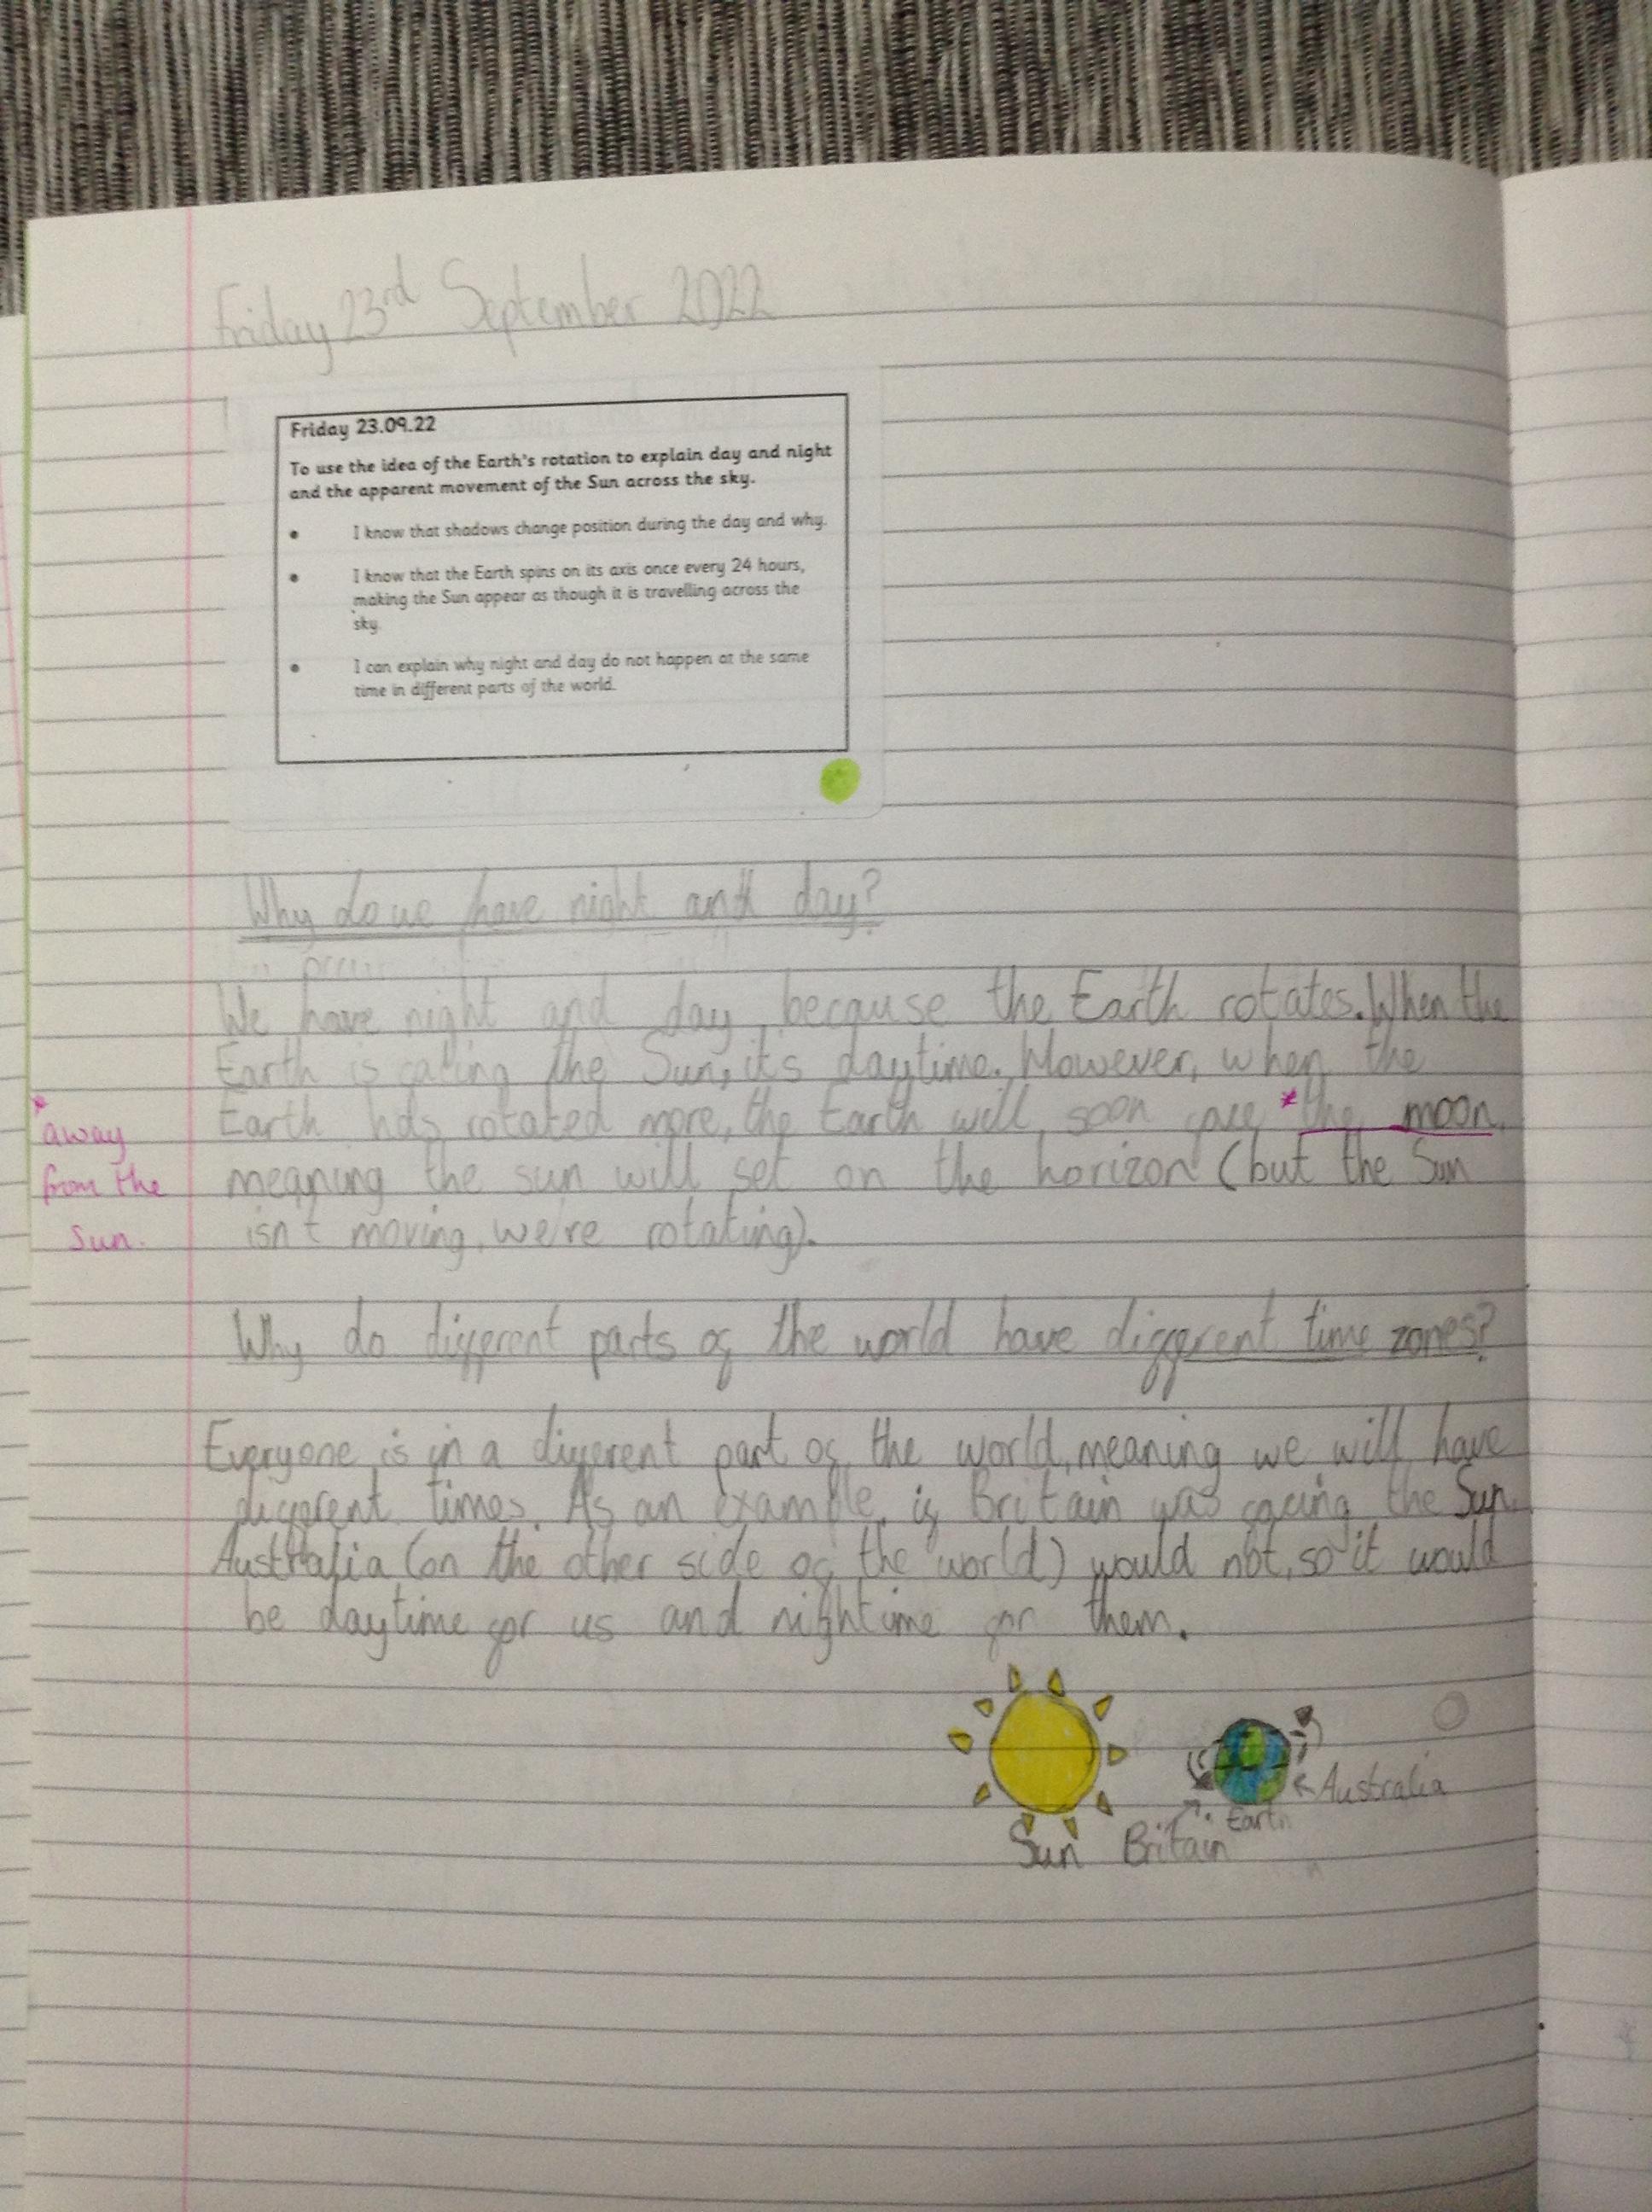 Friday 23rd September 2022
Friday 23.09.22
To use the idea of the Earth's rotation to explain day and night
and the apparent movement of the Sun across the sky.
• I know that shadows change position during the day and why.
• I know that the Earth spins on its axis once every 24 hours,
making the Sun appear as though it is travelling across the
sky.
• I can explain why night and day do not happen at the same
time in different parts of the world.
Why do we have night and day?
We have night and day, because the Earth rotates. When the
Earth is facing the Sun, it's daytime. However, when the
Earth has rotated more, the Earth will soon face *the moon,
*
away
from the
Sun.
meaning the sun will set on the horizon (but the Sun
isn't moving, we're rotating).
Why do different parts of the world have different time zones?
Everyone is in a different part of the world, meaning we will have
different times. As an example, if Britain was facing the Sun,
Australia (on the other side of the world) would not, so it would
be daytime for us and nightime for them.
Australia
Earth
Sun Britain